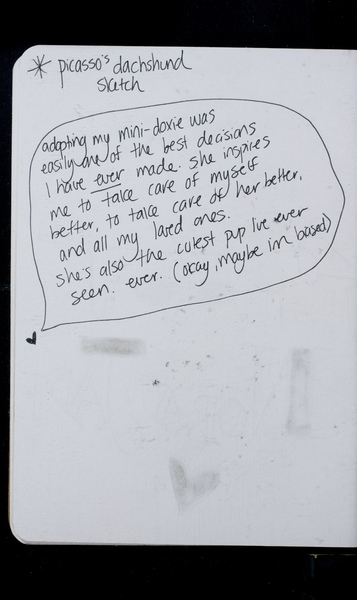 * picasso's dachshund
sketch
adopting my mini-doxie was
easily one of the best decisions
I have ever made. she inspires
me to take care of myself
better, to take care of her better,
and all my loved ones.
she's also the cutest pup I've ever
seen. ever. (okay, maybe im biased)